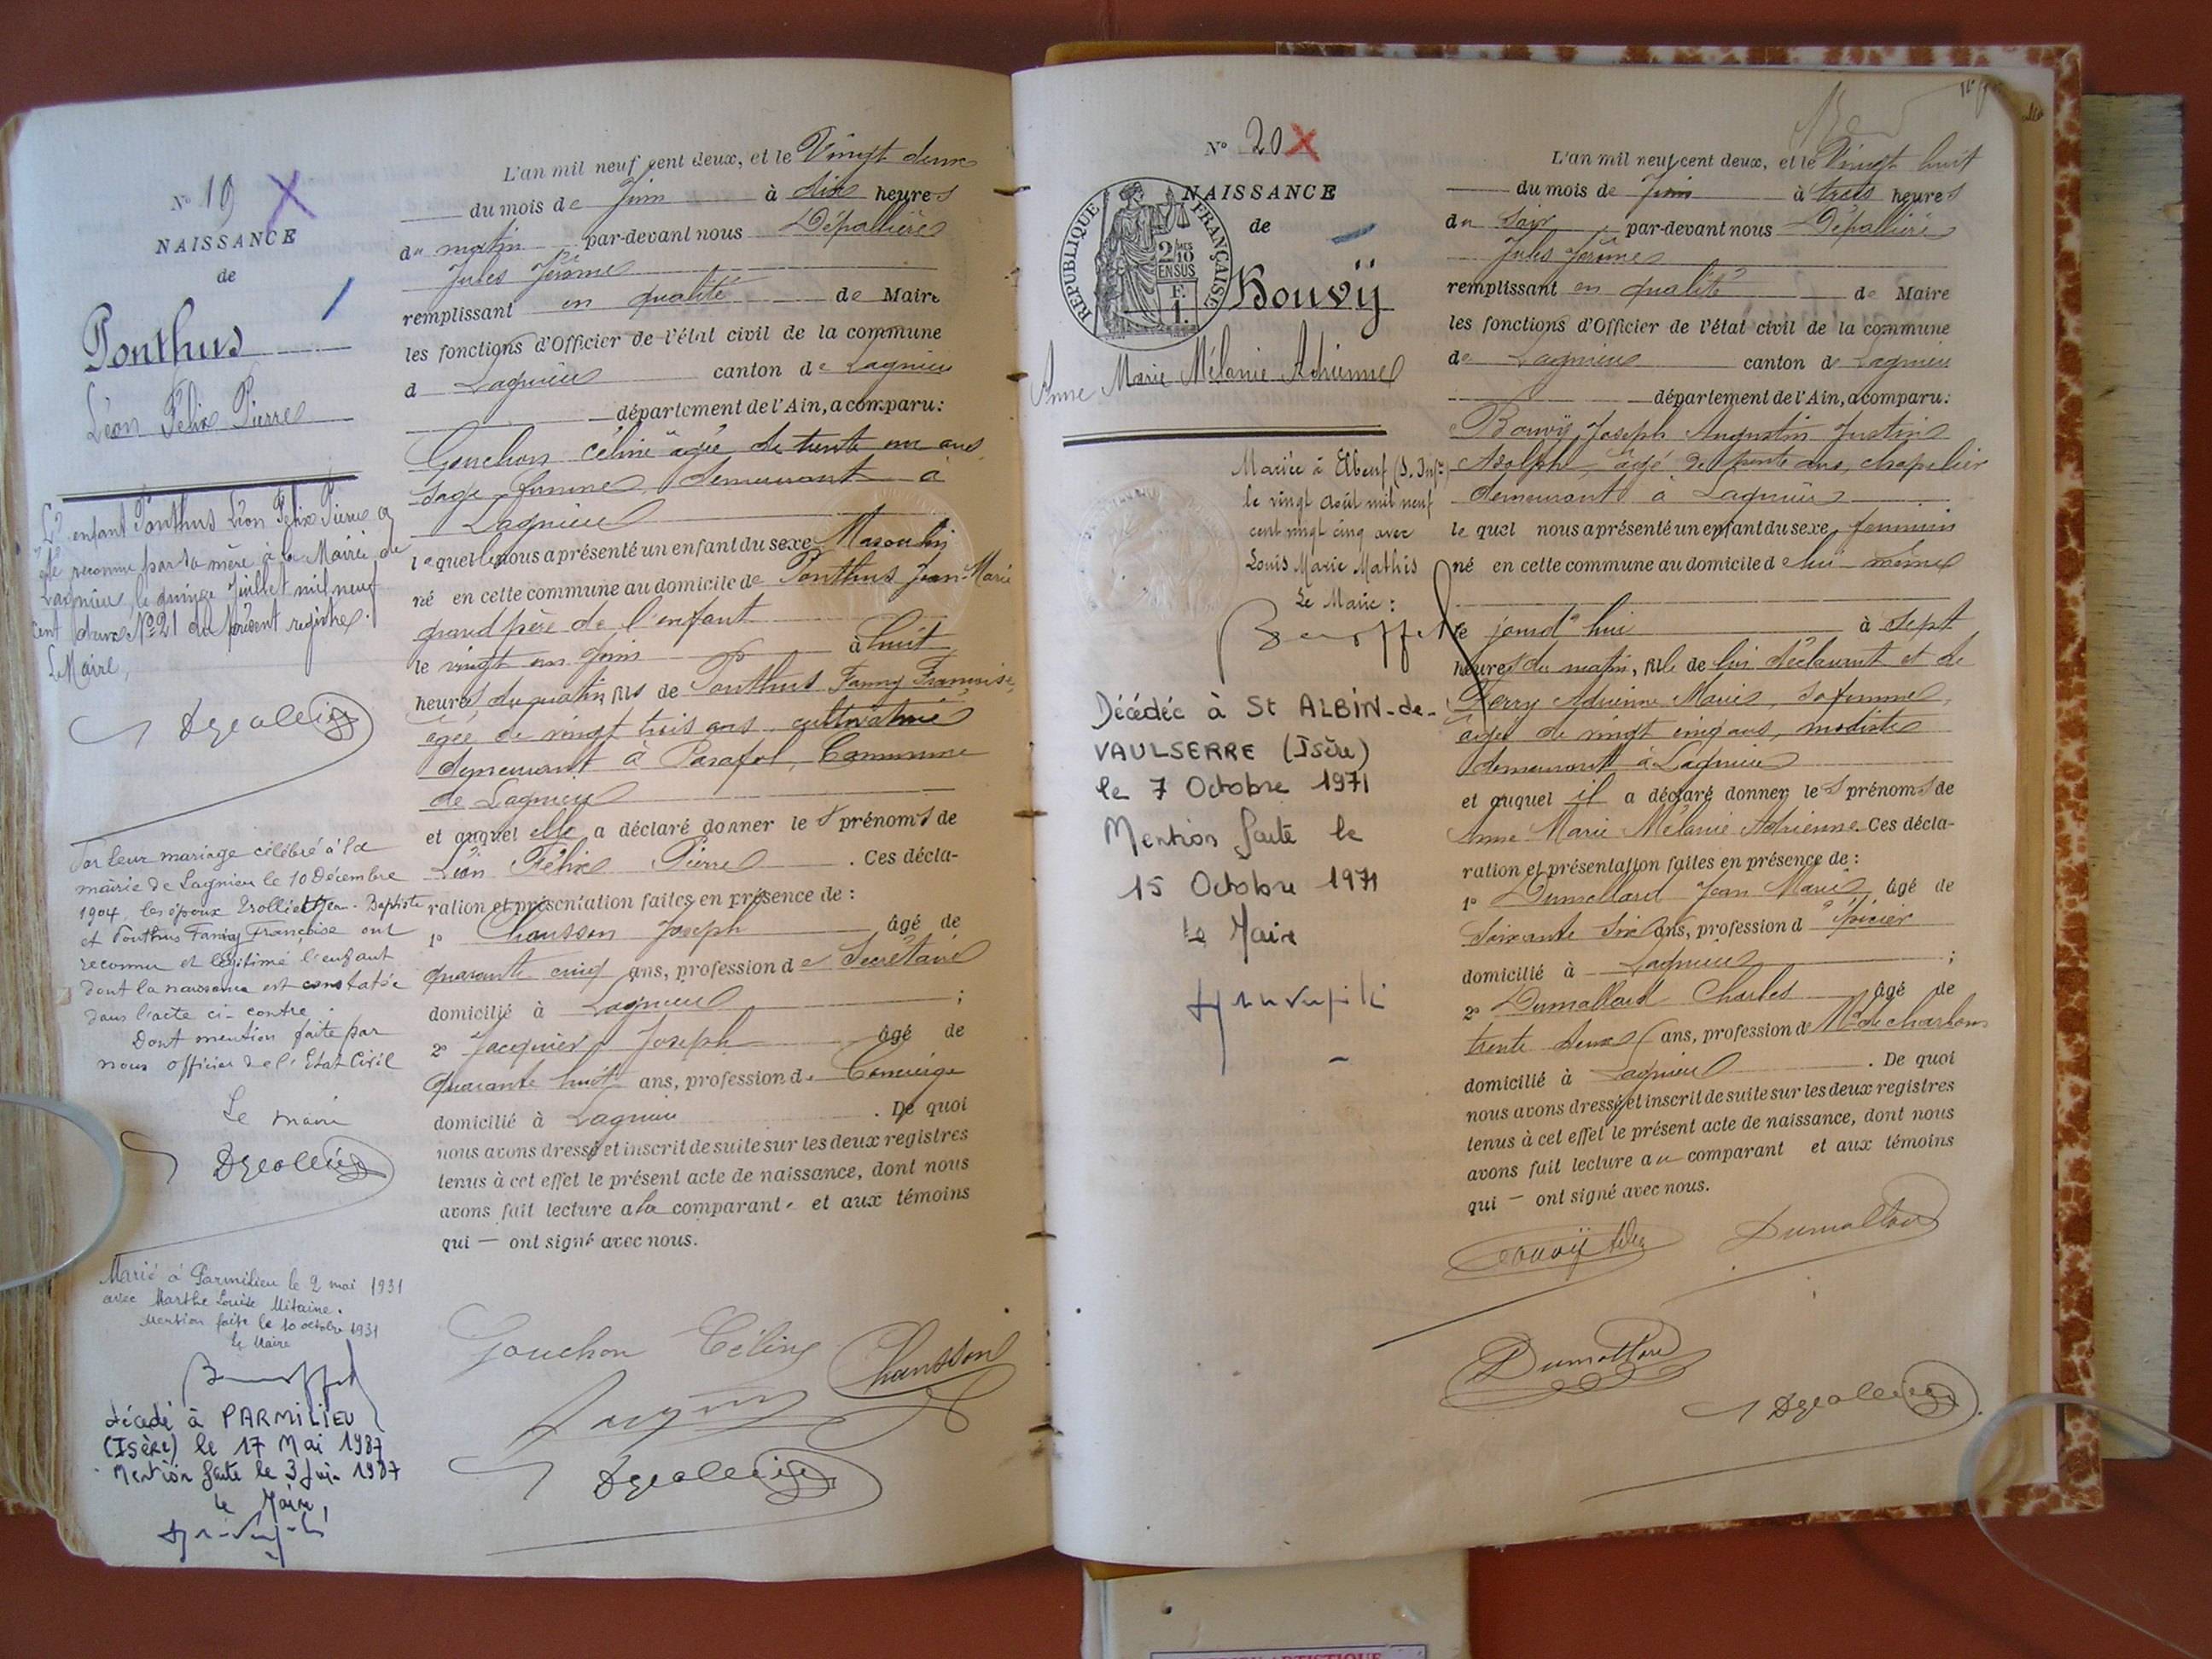 N° 19 X
NAISSANCE
de
Ponthus
Léon Félix Pierre
L'enfant Ponthus Léon Félix Pierre a
été reconnu par sa mère à la Mairie de
Lagnieu, le quinze Juillet mil neuf
cent deux N° 21 du présent registre.
Le Maire,
Par leur mariage célébré à la
mairie de Lagnieu le 10 Décembre
1904, les époux Trolliet Jean-Baptiste
et Ponthus Fanny Françoise ont
reconnu et légitimé l'enfant
dont la naissance est constatée
dans l'acte ci-contre.
Dont mention faite par
nous officier de l'Etat Civil
Le maire
Marié à Parmilieu le 2 mai 1931
avec Marthe Louise Mitaine.
Mention faite le 10 octobre 1931
Le Maire
décédé à PARMILIEU
(ISÈRE) le 17 Mai 1987
Mention faite le 3 Juin 1987
Le Maire,
L'an mil neuf cent deux, et le Vingt deux
du mois de Juin à dix heures
du matin par-devant nous Dépallière
Jules Jérôme
remplissant en qualité de Maire
les fonctions d'Officier de l'état civil de la commune
d Lagnieu canton de Lagnieu
département de l'Ain, a comparu:
Gouchon Céline âgée de trente un ans,
sage femme, demeurant à
Lagnieu
laquelle nous a présenté un enfant du sexe Masculin
né en cette commune au domicile de Ponthus Jean-Marie
grand père de l'enfant
le vingt un Juin à huit
heures du matin, fils de Ponthus Fanny Françoise,
âgée de vingt trois ans cultivatrice
demeurant à Posafol, Commune
de Lagnieu
et auquel elle a déclaré donner les prénoms de
Léon Félix Pierre . Ces décla-
ration et présentation faites en présence de :
1° Chausson Joseph âgé de
quarante cinq ans, profession de Secrétaire
domicilié à Lagnieu ;
2° Jacquier Joseph âgé de
Quarante huit ans, profession de Concierge
domicilié à Lagnieu . De quoi
nous avons dressé et inscrit de suite sur les deux registres
tenus à cet effet le présent acte de naissance, dont nous
avons fait lecture a la comparante et aux témoins
qui — ont signé avec nous.
Gouchon Céline Chausson
N° 20 X
NAISSANCE
de
REPUBLIQUE FRANÇAISE
Bouvÿ
Anne Marie Mélanie Adrienne
Mariée à Elbeuf (S. Infre)
le vingt août mil neuf
cent vingt cinq avec
Louis Marie Mathis
Le Maire :
Décédée à St ALBIN-de-
VAULSERRE (Isère)
le 7 Octobre 1971
Mention faite le
15 Octobre 1971
Le Maire
L'an mil neuf cent deux, et le Vingt huit
du mois de Juin à trois heures
du soir par-devant nous Dépallière
Jules Jérôme
remplissant en qualité de Maire
les fonctions d'Officier de l'état civil de la commune
de Lagnieu canton de Lagnieu
département de l'Ain, a comparu:
Bouvÿ Joseph Augustin Justin
Adolphe, âgé de trente ans, chapelier
demeurant à Lagnieu
lequel nous a présenté un enfant du sexe féminin
né en cette commune au domicile de lui-même
le jourd'hui à sept
heures du matin, fille de lui déclarant et de
Ferry Adrienne Marie, sa femme,
âgée de vingt cinq ans, modiste
demeurant à Lagnieu
et auquel il a déclaré donner les prénoms de
Anne Marie Mélanie Adrienne. Ces décla-
ration et présentation faites en présence de :
1° Dumollard Jean Marie, âgé de
soixante six ans, profession d' épicier
domicilié à Lagnieu ;
2° Dumollard Charles âgé de
trente deux ans, profession de Md de charbons
domicilié à Lagnieu . De quoi
nous avons dressé et inscrit de suite sur les deux registres
tenus à cet effet le présent acte de naissance, dont nous
avons fait lecture au comparant et aux témoins
qui — ont signé avec nous.
Dumollard
Dumollard